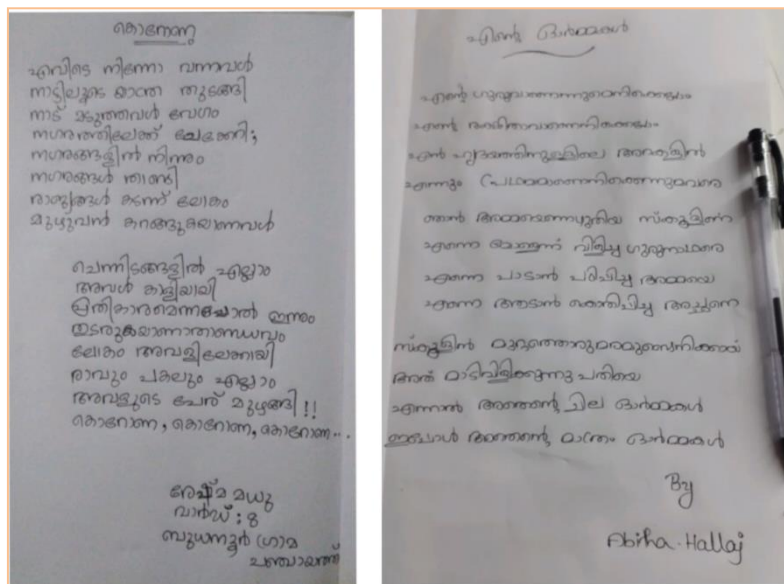 കൊറോണ
എവിടെ നിന്നോ വന്നവൾ
നാട്ടിലൂടെ യാത്ര തുടങ്ങി
നാട് മടുത്തവൾ വേഗം
നഗരത്തിലേക്ക് ചേക്കേറി;
നഗരങ്ങളിൽ നിന്നും
നഗരങ്ങൾ താണ്ടി
രാജ്യങ്ങൾ കടന്ന് ലോകം
മുഴുവൻ കറങ്ങുകയാണവൾ
ചെന്നിടങ്ങളിൽ എല്ലാം
അവൾ കാളിയായി
പ്രതികാരമെന്നപോൽ ഇന്നും
തുടരുകയാണാതാണ്ഡവം
ലോകം അവളിലേക്കായി
രാവും പകലും എല്ലാം
അവളുടെ പേര് മുഴങ്ങി!!
കൊറോണ, കൊറോണ, കൊറോണ...
രേഷ്മ മധു
വാർഡ്: 8
ബുധനൂർ ഗ്രാമ
പഞ്ചായത്ത്
എന്റെ ഓർമ്മകൾ
എന്റെ
എന്റെ
എൻ ഹൃദയത്തിനുള്ളിലെ
എന്നും
ഞാൻ സ്കൂളിന്റെ
എന്നെ വിളിച്ച ഗുരുനാഥരെ
എന്നെ പാടാൻ പഠിപ്പിച്ച അമ്മയെ
എന്നെ ആടാൻ കൊതിപ്പിച്ച അച്ഛനെ
സ്കൂളിൻ
അത് മാടിവിളിക്കുന്നു പതിയെ
എന്നാൽ അതെന്റെ ചില ഓർമ്മകൾ
ഇപ്പോൾ അതെന്റെ മാത്രം ഓർമ്മകൾ
By
Abitha.Hallaj